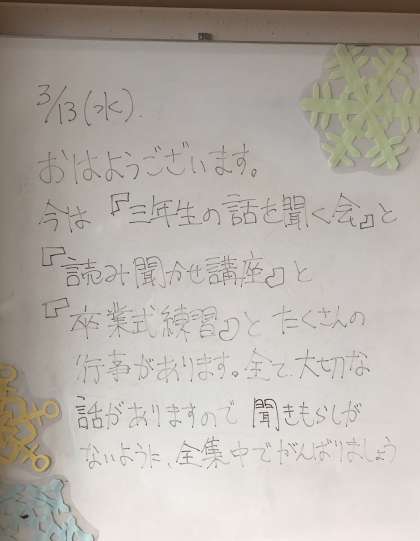 3/13(水).
おはようございます。
今は『三年生の話を聞く会』と
『読み聞かせ講座』と
『卒業式練習』とたくさんの
行事があります。全て大切な
話がありますので聞きもらしが
ないように、全集中でがんばりましょう